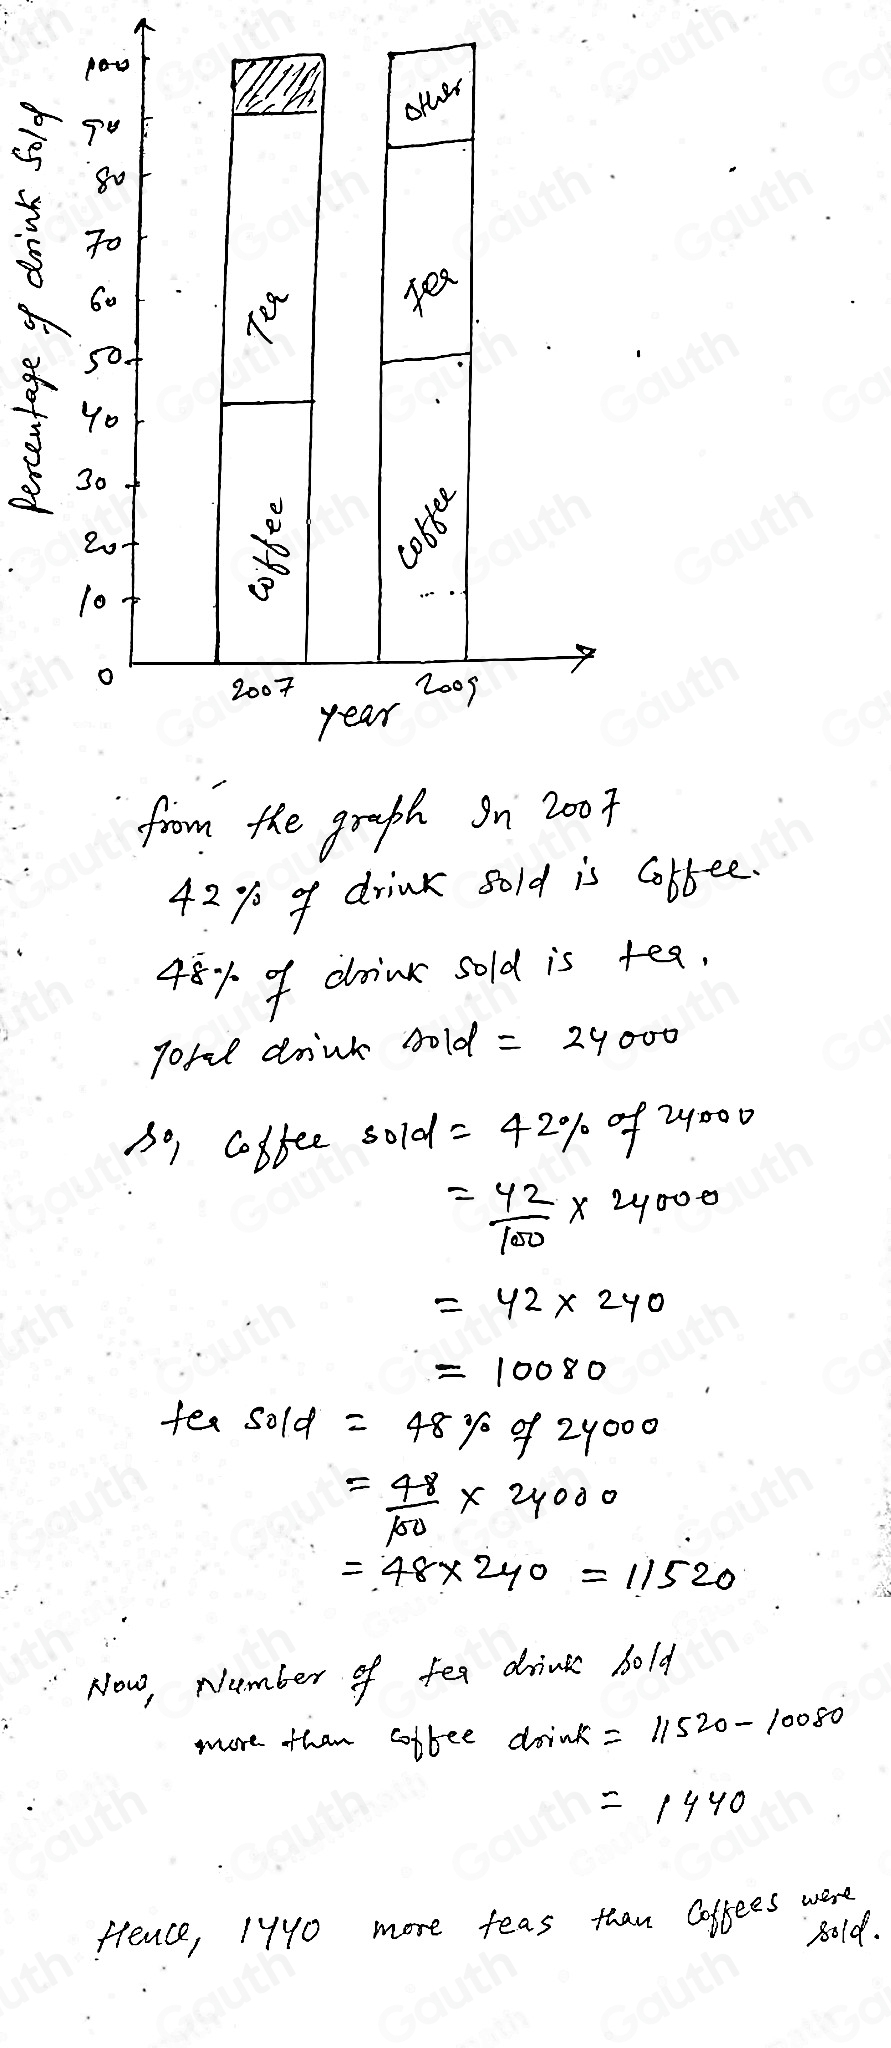 Percentage of drink sold
100
90
80
70
60
50
40
30
20
10
0
Tea
Coffee
other
Tea
Coffee
2007
2009
year
from the graph In 2007
42% of drink sold is Coffee.
48% of drink sold is tea.
Total drink sold = 24000
So, Coffee sold = 42% of 24000
= 42/100 × 24000
= 42 × 240
= 10080
tea sold = 48% of 24000
= 48/100 × 24000
= 48×240 = 11520
Now, Number of tea drink sold
more than coffee drink = 11520-10080
= 1440
Hence, 1440 more teas than Coffees were
sold.
Gauth